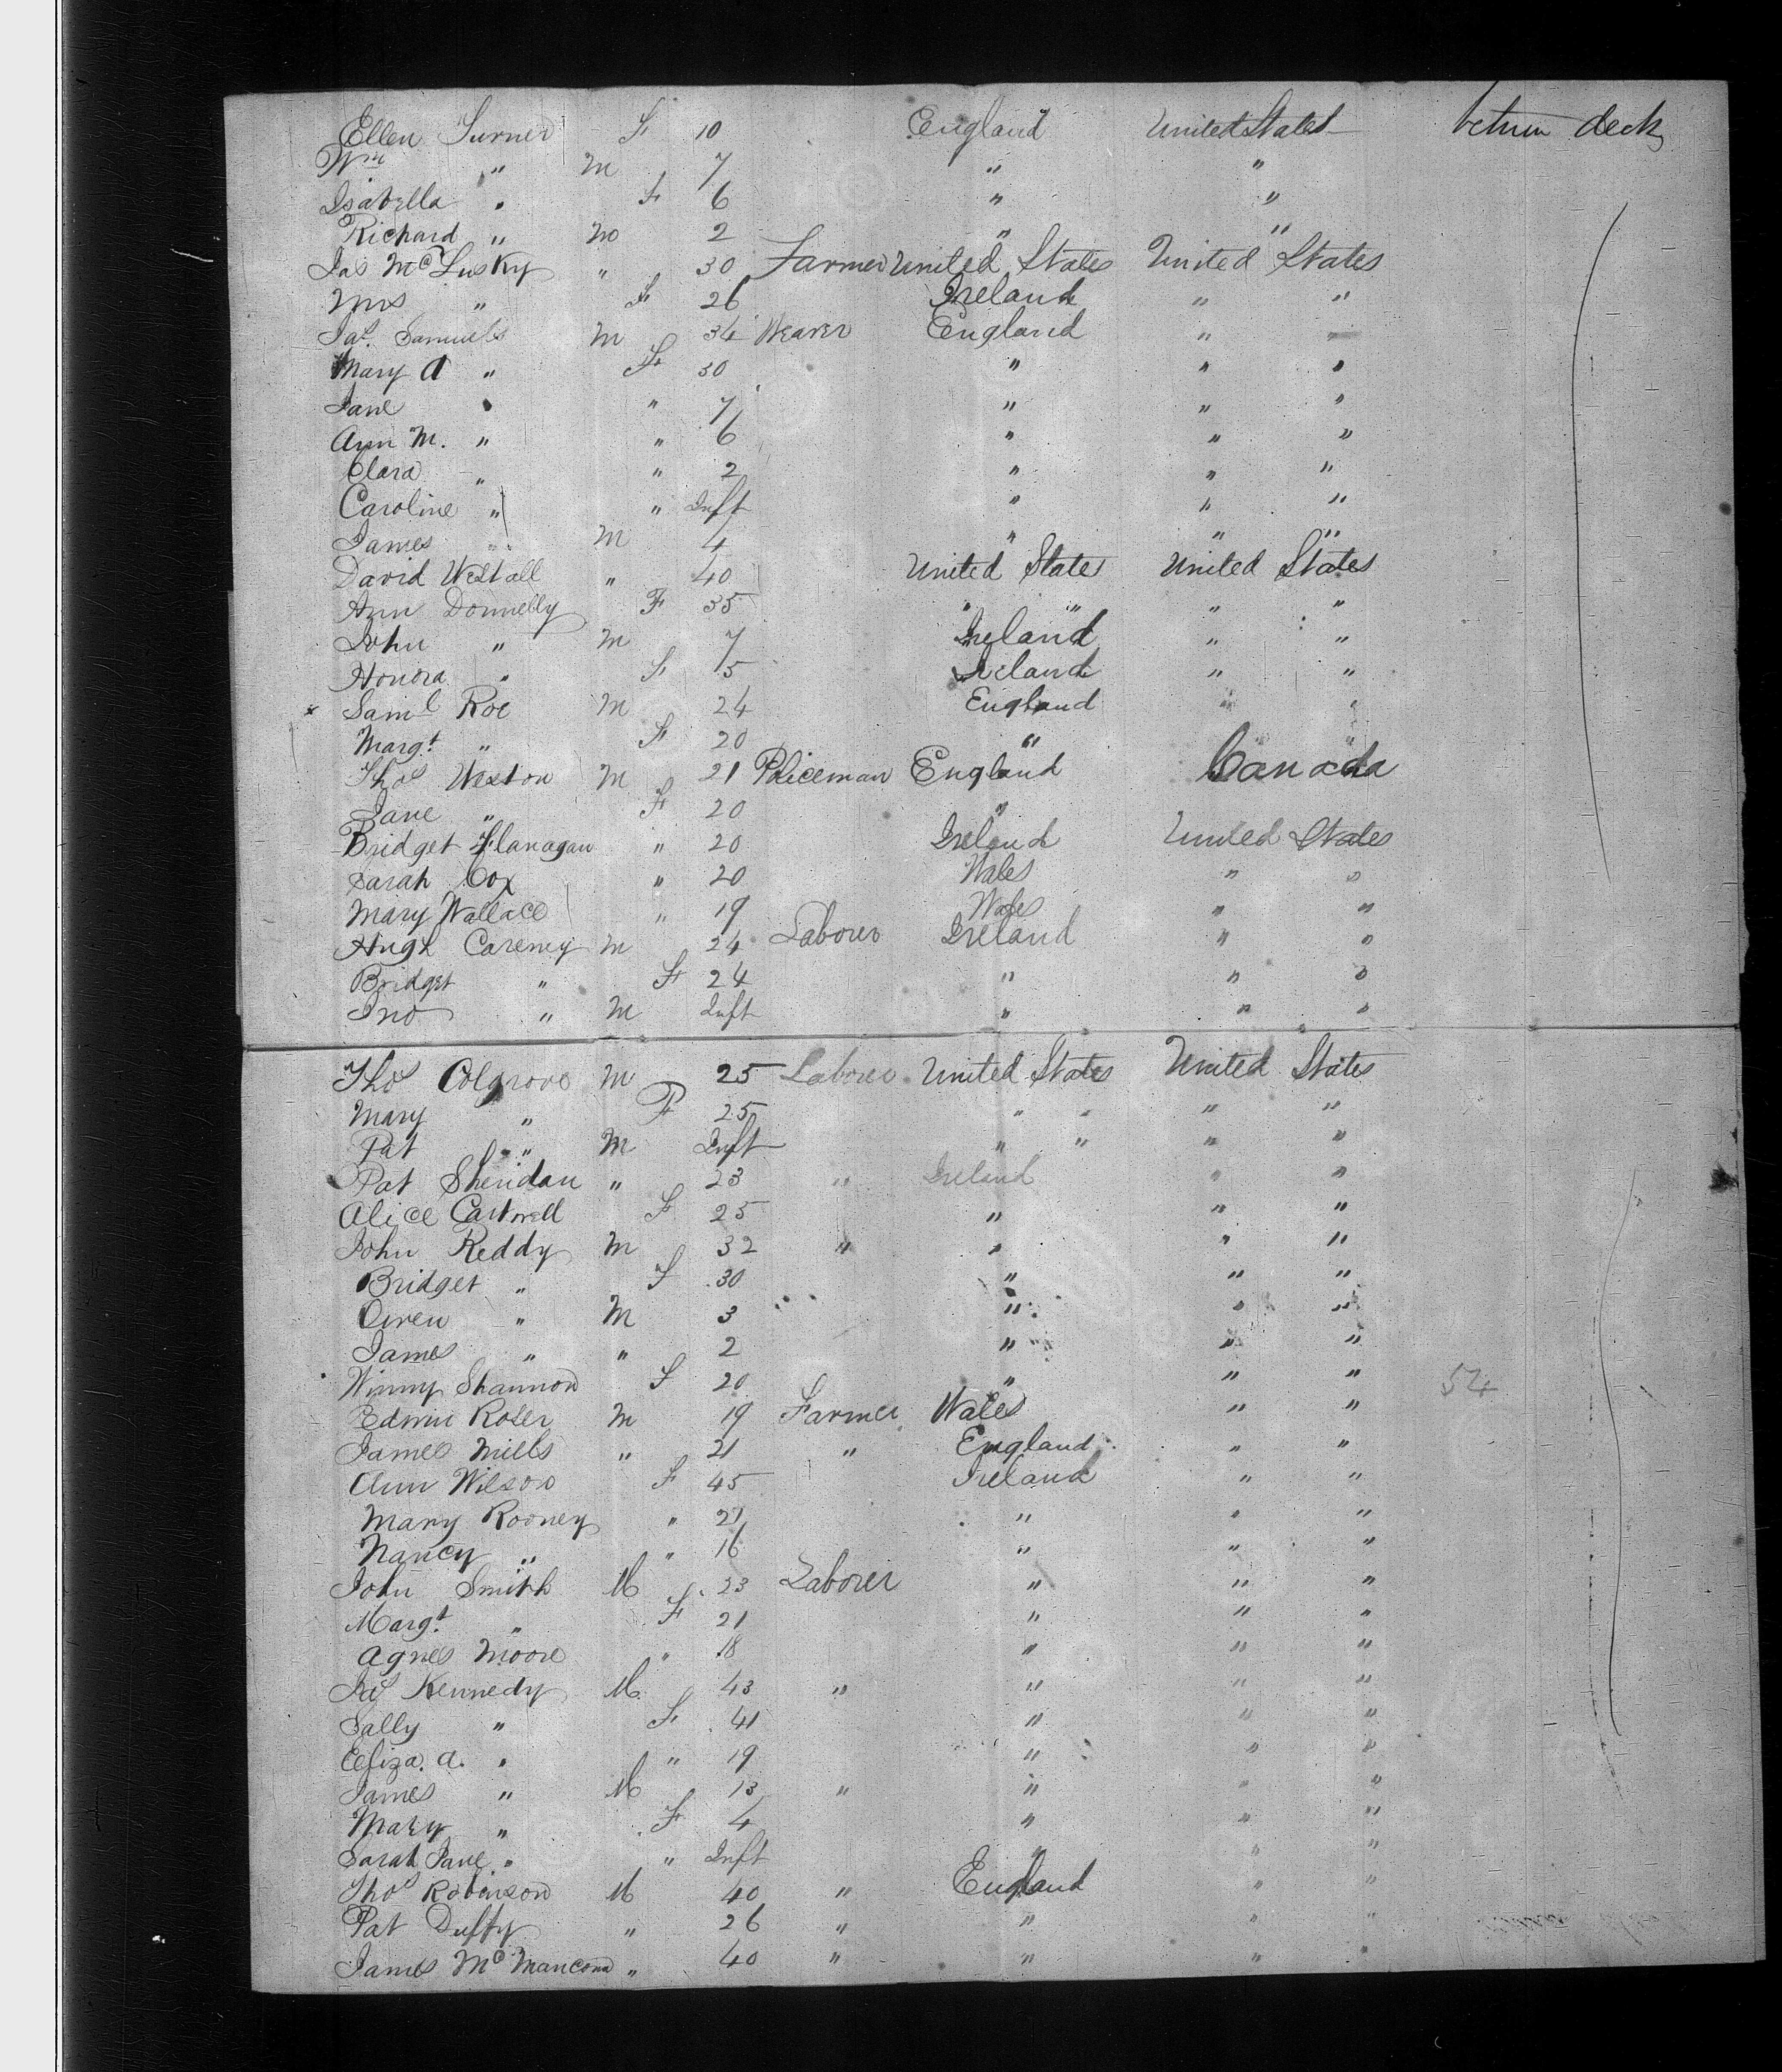 Ellen Turner F 10 England United States betwn deck
Wm " M 7 " "
Isabella " F 6 " "
Richard " M 2 " "
Jas McLusky " 30 Farmer United States United States
Mrs " F 26 Ireland " "
Jas. Samuels M 34 Weaver England " "
Mary A " F 30 " " "
Jane " " 7 " " "
Ann M. " " 6 " " "
Clara " " 2 " " "
Caroline " " Inft " " "
James " M 4 " " "
David Westall " 40 United States United States
Ann Donnelly F 35 " " " "
John " M 7 Ireland " "
Honora " F 5 Ireland " "
x Saml Roe M 24 England " "
Margt " F 20 " " "
Thos Weston M 21 Policeman England Canada
Jane " F 20 "
Bridget Flanagan " 20 Ireland United States
Sarah Cox " 20 Wales " "
Mary Wallace " 19 Wales " "
Hugh Careny M 24 Laborer Ireland " "
Bridget " F 24 " " "
Jno " M Inft " " "
Thos Colgrove M 25 Laborer United States United States
Mary " F 25 " " " "
Pat " M Inft " " " "
Pat Sheridan " 23 " Ireland " "
Alice F 25 " " "
John Reddy M 32 " " " "
Bridget " F 30 " " "
Owen " M 3 " " "
James " " 2 " " "
Winny Shannon F 20 " " " 54
Edwin Roser M 19 Farmer Wales " "
James Mills " 21 " England " "
Ann Wilson F 45 Ireland " "
Mary Rooney " 21 " " "
Nancy " " 16 " " "
John Smith M 23 Laborer " " "
Margt " F 21 " " "
Agnes Moore " 18 " " "
Jas Kennedy M 43 " " " "
Sally " F 41 " " "
Eliza. A. " " 19 " " "
James " M 13 " " " "
Mary " F 4 " " "
Sarah Jane " " Inft " " "
Thos Robinson M 40 " England " "
Pat Duffy " 26 " " " "
James " 40 " " " "